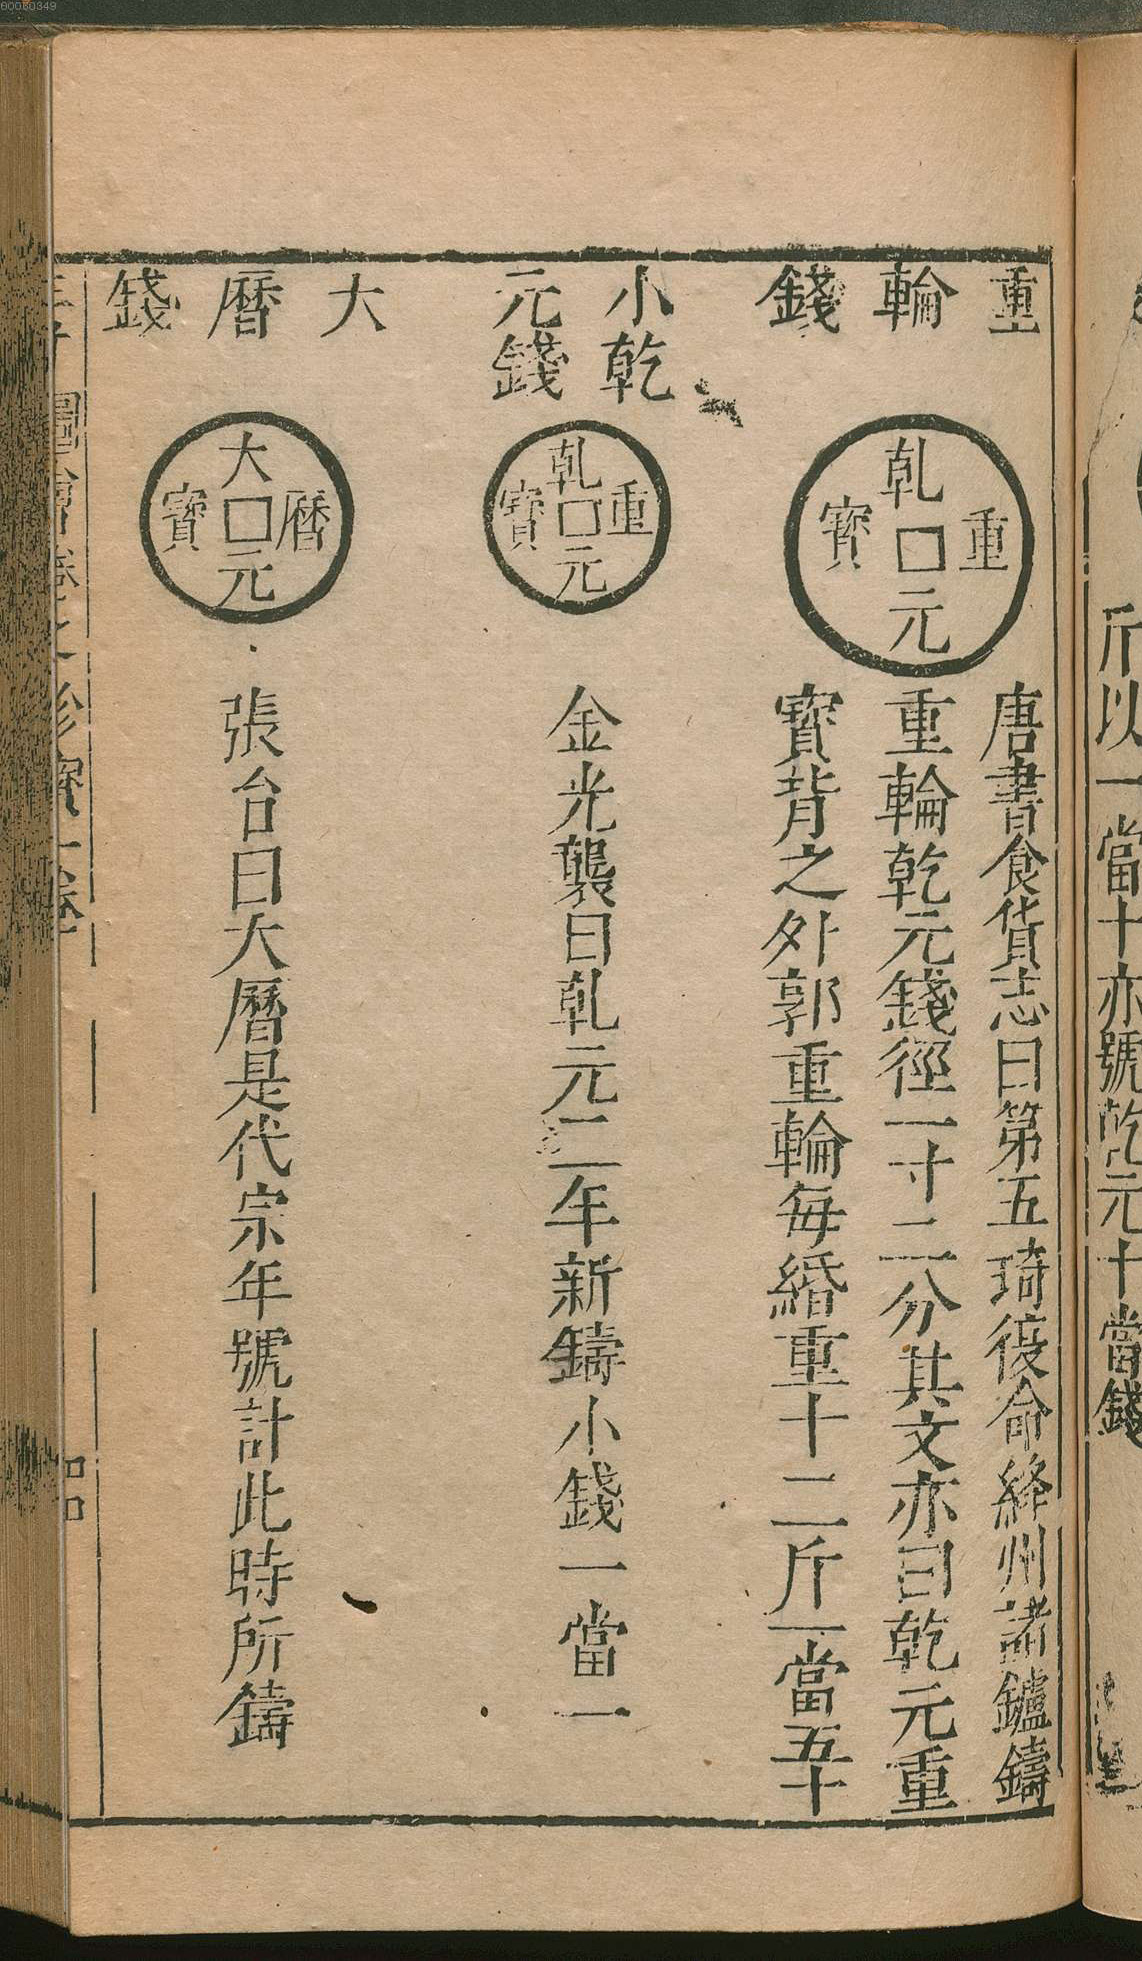 所以一當十亦號乾元十當錢
重
輪
錢
乹元重寳
唐書食貨志曰第五琦復命絳州諸鑪鑄
重輪乾元錢徑一寸二分其文亦曰乾元重
寳背之外郭重輪每緡重十二斤一當五十
小乾
元錢
乹元重寳
金光襲曰乹元二年新鑄小錢一當一
大
曆
錢
大元曆寳
張台曰大曆是代宗年號計此時所鑄
圖會
珍寳一卷
60060349